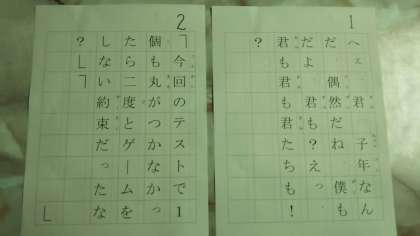 1
へェ　君　子年なん
だ　偶然だね　僕も
だよ　君も？えっ
君も君も君たちも！
？
2
「今回のテストで1
個も丸がつかなかっ
たら二度とゲームを
しない約束だったな
？」「　　　　　」